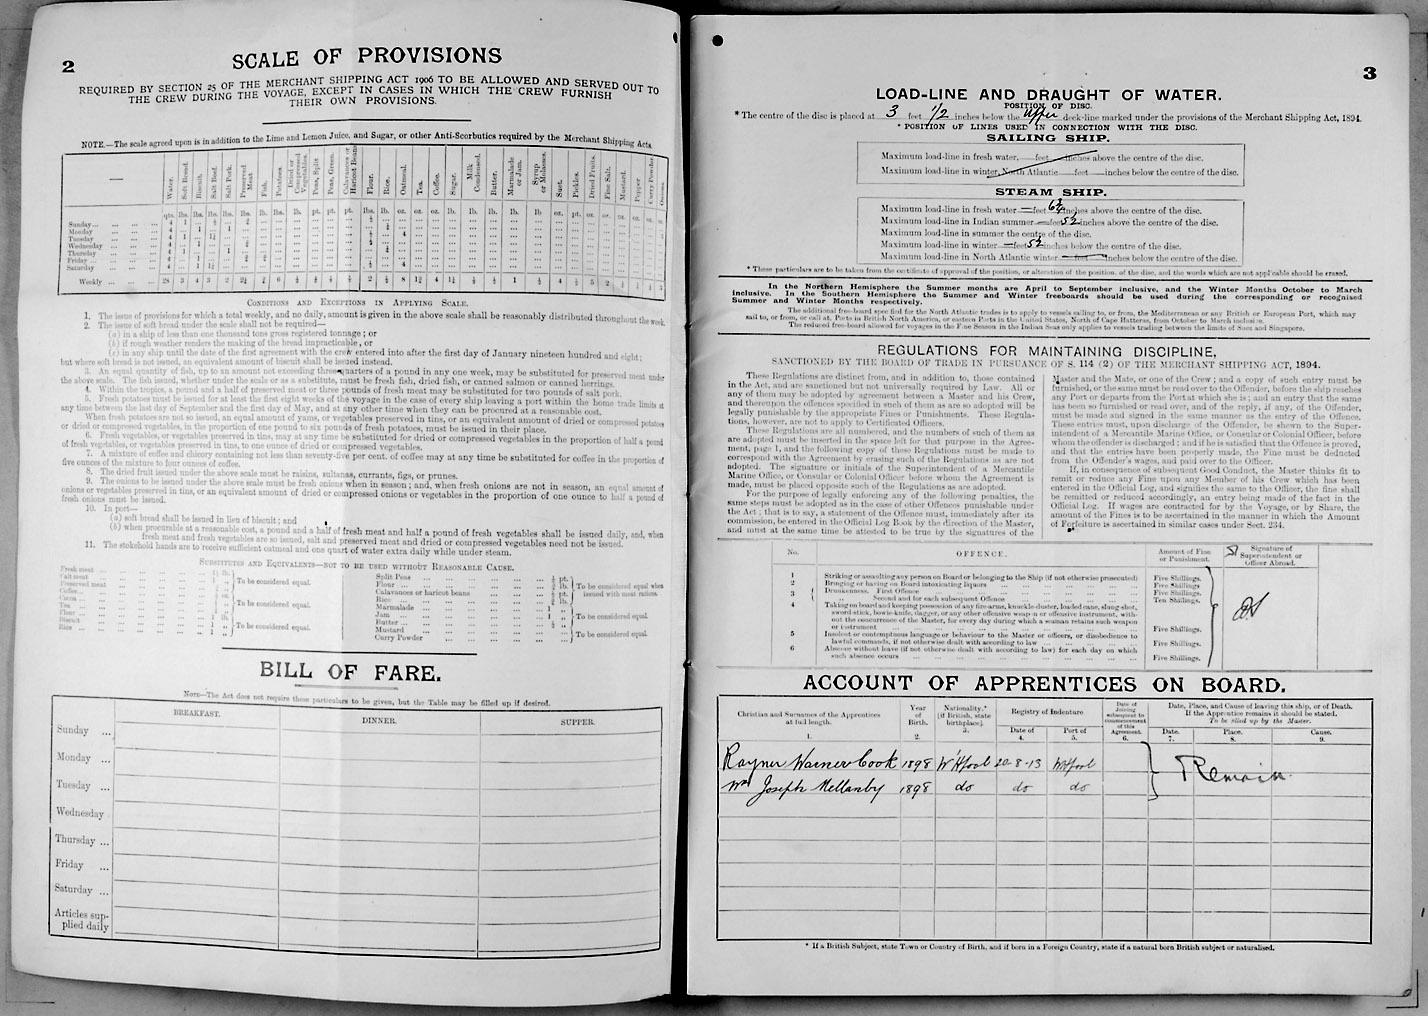 2
SCALE OF PROVISIONS
REQUIRED BY SECTION 25 OF THE MERCHANT SHIPPING ACT 1906 TO BE ALLOWED AND SERVED OUT TO
THE CREW DURING THE VOYAGE, EXCEPT IN CASES IN WHICH THE CREW FURNISH
THEIR OWN PROVISIONS.
NOTE.—The scale agreed upon is in addition to the Lime and Lemon Juice, and Sugar, or other Anti-Scorbutics required by the Merchant Shipping Acts.
Water. Soft Bread. Biscuit. Salt Beef. Salt Pork. Preserved Meat. Fish. Potatoes. Dried or Compressed Vegetables. Peas, Split Peas, Green. Calavances or Haricot Beans Flour. Rice. Oatmeal. Tea. Coffee. Sugar. Milk Condensed. Butter. Marmalade or Jam. Syrup or Molasses. Suet. Pickles. Dried Fruits. Fine Salt. Mustard. Pepper Curry Powder Onions.
Sunday
Monday
Tuesday
Wednesday
Thursday
Friday
Saturday
Weekly
CONDITIONS AND EXCEPTIONS IN APPLYING SCALE.
1. The issue of provisions for which a total weekly, and no daily, amount is given in the above scale shall be reasonably distributed throughout the week.
2. The issue of soft bread under the scale shall not be required—
(a) in a ship of less than one thousand tons gross registered tonnage; or
(b) if rough weather renders the making of the bread impracticable, or
(c) in any ship until the date of the first agreement with the crew entered into after the first day of January nineteen hundred and eight;
but where soft bread is not issued, an equivalent amount of biscuit shall be issued instead.
3. An equal quantity of fish, up to an amount not exceeding three-quarters of a pound in any one week, may be substituted for preserved meat under
the above scale. The fish issued, whether under the scale or as a substitute, must be fresh fish, dried fish, or canned salmon or canned herrings.
4. Within the tropics, a pound and a half of preserved meat or three pounds of fresh meat may be substituted for two pounds of salt pork.
5. Fresh potatoes must be issued for at least the first eight weeks of the voyage in the case of every ship leaving a port within the home trade limits at
any time between the last day of September and the first day of May, and at any other time when they can be procured at a reasonable cost.
When fresh potatoes are not so issued, an equal amount of yams, or vegetables preserved in tins, or an equivalent amount of dried or compressed potatoes
or dried or compressed vegetables, in the proportion of one pound to six pounds of fresh potatoes, must be issued in their place.
6. Fresh vegetables, or vegetables preserved in tins, may at any time be substituted for dried or compressed vegetables in the proportion of half a pound
of fresh vegetables, or vegetables preserved in tins, to one ounce of dried or compressed vegetables.
7. A mixture of coffee and chicory containing not less than seventy-five per cent. of coffee may at any time be substituted for coffee in the proportion of
five ounces of the mixture to four ounces of coffee.
8. The dried fruit issued under the above scale must be raisins, sultanas, currants, figs, or prunes.
9. The onions to be issued under the above scale must be fresh onions when in season; and, when fresh onions are not in season, an equal amount of
onions or vegetables preserved in tins, or an equivalent amount of dried or compressed onions or vegetables in the proportion of one ounce to half a pound of
fresh onions must be issued.
10. In port—
(a) soft bread shall be issued in lieu of biscuit; and
(b) when procurable at a reasonable cost, a pound and a half of fresh meat and half a pound of fresh vegetables shall be issued daily, and, when
fresh meat and fresh vegetables are so issued, salt and preserved meat and dried or compressed vegetables need not be issued.
11. The stokehold hands are to receive sufficient oatmeal and one quart of water extra daily while under steam.
SUBSTITUTES AND EQUIVALENTS—NOT TO BE USED WITHOUT REASONABLE CAUSE.
Fresh meat
Salt meat
Preserved meat
To be considered equal.
Coffee
Cocoa
Tea
To be considered equal.
Flour
Biscuit
Rice
To be considered equal.
Split Peas
Flour
Calavances or haricot beans
Rice
To be considered equal when issued with meat rations.
Marmalade
Jam
Butter
To be considered equal.
Mustard
Curry Powder
To be considered equal.
BILL OF FARE.
NOTE—The Act does not require these particulars to be given, but the Table may be filled up if desired.
BREAKFAST. DINNER. SUPPER.
Sunday ...
Monday ...
Tuesday ...
Wednesday
Thursday ...
Friday ...
Saturday ...
Articles sup-
plied daily
3
LOAD-LINE AND DRAUGHT OF WATER.
POSITION OF DISC.
* The centre of the disc is placed at 3 feet 1/2 inches below the Upper deck-line marked under the provisions of the Merchant Shipping Act, 1894.
* POSITION OF LINES USED IN CONNECTION WITH THE DISC.
SAILING SHIP.
Maximum load-line in fresh water, feet inches above the centre of the disc.
Maximum load-line in winter, North Atlantic feet inches below the centre of the disc.
STEAM SHIP.
Maximum load-line in fresh water — feet inches above the centre of the disc.
Maximum load-line in Indian summer — feet 5½ inches above the centre of the disc.
Maximum load-line in summer the centre of the disc.
Maximum load-line in winter — feet 5½ inches below the centre of the disc.
Maximum load-line in North Atlantic winter — feet — inches below the centre of the disc.
* These particulars are to be taken from the certificate of approval of the position, or alteration of the position, of the disc, and the words which are not applicable should be erased.
In the Northern Hemisphere the Summer months are April to September inclusive, and the Winter Months October to March
inclusive. In the Southern Hemisphere the Summer and Winter freeboards should be used during the corresponding or recognised
Summer and Winter Months respectively.
The additional free-board specified for the North Atlantic trades is to apply to vessels sailing to, or from, the Mediterranean or any British or European Port, which may
sail to, or from, or call at, Ports in British North America, or eastern Ports in the United States, North of Cape Hatteras, from October to March inclusive.
The reduced free-board allowed for voyages in the Fine Season in the Indian Seas only applies to vessels trading between the limits of Suez and Singapore.
REGULATIONS FOR MAINTAINING DISCIPLINE,
SANCTIONED BY THE BOARD OF TRADE IN PURSUANCE OF S. 114 (2) OF THE MERCHANT SHIPPING ACT, 1894.
These Regulations are distinct from, and in addition to, those contained
in the Act, and are sanctioned but not universally required by Law. All or
any of them may be adopted by agreement between a Master and his Crew,
and thereupon the offences specified in such of them as are so adopted will be
legally punishable by the appropriate Fines or Punishments. These Regula-
tions, however, are not to apply to Certificated Officers.
These Regulations are all numbered, and the numbers of such of them as
are adopted must be inserted in the space left for that purpose in the Agree-
ment, page 1, and the following copy of these Regulations must be made to
correspond with the Agreement by erasing such of the Regulations as are not
adopted. The signature or initials of the Superintendent of a Mercantile
Marine Office, or Consular or Colonial Officer before whom the Agreement is
made, must be placed opposite such of the Regulations as are adopted.
For the purpose of legally enforcing any of the following penalties, the
same steps must be adopted as in the case of other Offences punishable under
the Act; that is to say, a statement of the Offence must, immediately after its
commission, be entered in the Official Log Book by the direction of the Master,
and must at the same time be attested to be true by the signatures of the
Master and the Mate, or one of the Crew; and a copy of such entry must be
furnished, or the same must be read over to the Offender, before the ship reaches
any Port or departs from the Port at which she is; and an entry that the same
has been so furnished or read over, and of the reply, if any, of the Offender,
must be made and signed in the same manner as the entry of the Offence.
These entries must, upon discharge of the Offender, be shewn to the Super-
intendent of a Mercantile Marine Office, or Consular or Colonial Officer, before
whom the offender is discharged; and if he is satisfied that the Offence is proved,
and that the entries have been properly made, the Fine must be deducted
from the Offender's wages, and paid over to the Officer.
If, in consequence of subsequent Good Conduct, the Master thinks fit to
remit or reduce any Fine upon any Member of his Crew which has been
entered in the Official Log, and signifies the same to the Officer, the fine shall
be remitted or reduced accordingly, an entry being made of the fact in the
Official Log. If wages are contracted for by the Voyage, or by Share, the
amount of the Fines is to be ascertained in the manner in which the Amount
of Forfeiture is ascertained in similar cases under Sect. 234.
No. OFFENCE. Amount of Fine or Punishment. Signature of Superintendent or Officer Abroad.
1 Striking or assaulting any person on Board or belonging to the Ship (if not otherwise prosecuted) Five Shillings.
2 Bringing or having on Board intoxicating liquors Five Shillings
3 Drunkenness. First Offence Five Shillings.
" Second and for each subsequent Offence Ten Shillings.
4 Taking on board and keeping possession of any fire-arms, knuckle-duster, loaded cane, slung-shot,
sword-stick, bowie-knife, dagger, or any other offensive weapon or offensive instrument, with-
out the concurrence of the Master, for every day during which a seaman retains such weapon
or instrument Five Shillings.
5 Insolent or contemptuous language or behaviour to the Master or officers, or disobedience to
lawful commands, if not otherwise dealt with according to law Five Shillings.
6 Absence without leave (if not otherwise dealt with according to law) for each day on which
such absence occurs Five Shillings.
ACCOUNT OF APPRENTICES ON BOARD.
Christian and Surnames of the Apprentices at full length. 1. Year of Birth. 2. Nationality.* [if British, state birthplace]. 3. Registry of Indenture Date of 4. Port of 5. Date of Joining subsequent to commencement of this Agreement. 6. Date, Place, and Cause of leaving this ship, or of Death. If the Apprentice remains it should be stated. To be filled up by the Master. Date. 7. Place. 8. Cause. 9.
Rayner Warner Cook 1898 W'Hpool 20-8-13 W'Hpool Remain
Wm Joseph Mellanby 1898 do do do
* If a British Subject, state Town or Country of Birth, and if born in a Foreign Country, state if a natural born British subject or naturalised.